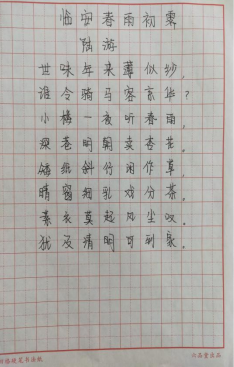 临安春雨初霁
陆游
世味年来薄似纱,
谁令骑马客京华?
小楼一夜听春雨,
深巷明朝卖杏花。
矮纸斜行闲作草,
晴窗细乳戏分茶。
素衣莫起风尘叹,
犹及清明可到家。